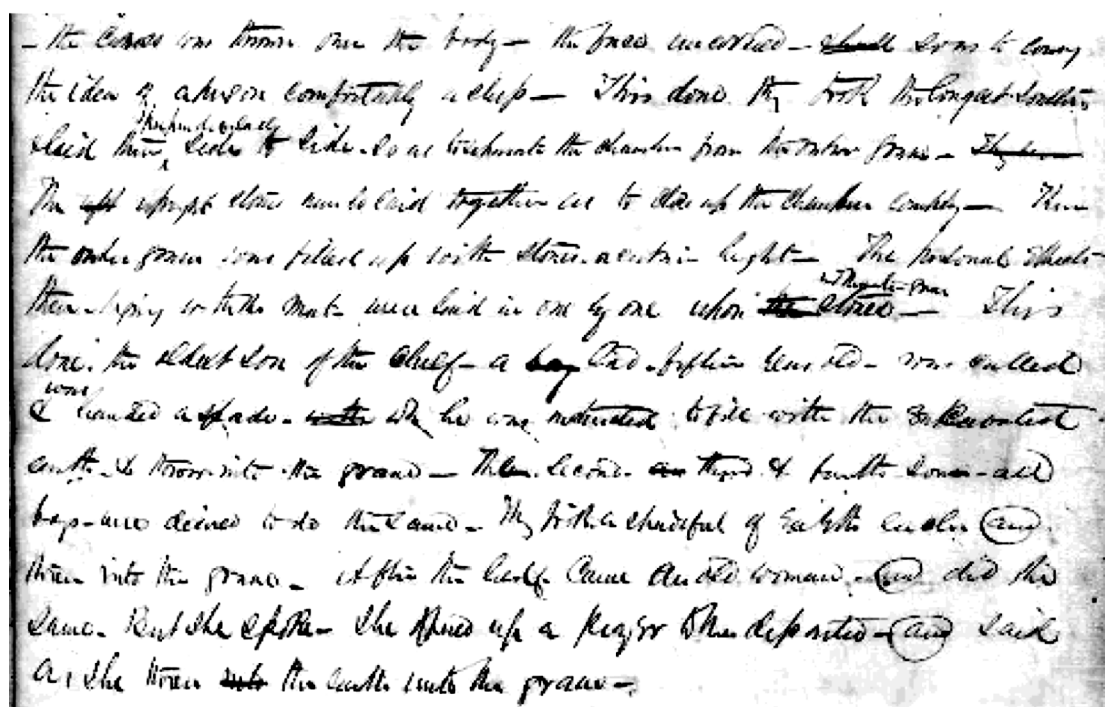 - the corpse was thrown over the body - the face uncovered - so as to convey
the idea of a person comfortably asleep - This done they took the longest
& laid them perpendicularly side to side - so as to separate the chamber from the outer grave -
The upright stones were so laid together as to close up the chamber - Then
the outer grave was filled up with stones a certain height - The personal effects
then - laying with the mats were laid in one by one upon the stones - This
done, the eldest son of the chief - a boy lad - fifteen years old - was called
& was handed a spade - wh he was instructed to fill with the excavated
earth - & throw into the grave - The second - third & fourth sons - all
boys - were desired to do the same - They took a spadeful of Earth each (and)
threw into the grave - After the last came an old woman - (and) did the
same - But she spoke - She offered up a prayer to the departed - (and) said
as she threw into the earth into the grave -